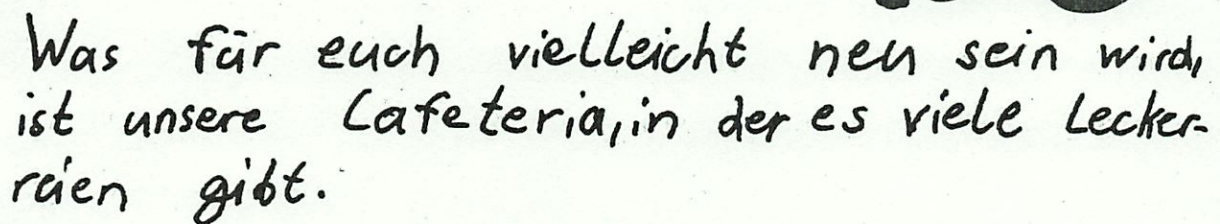 Was für euch vielleicht neu sein wird,
ist unsere Cafeteria, in der es viele Lecker-
reien gibt.